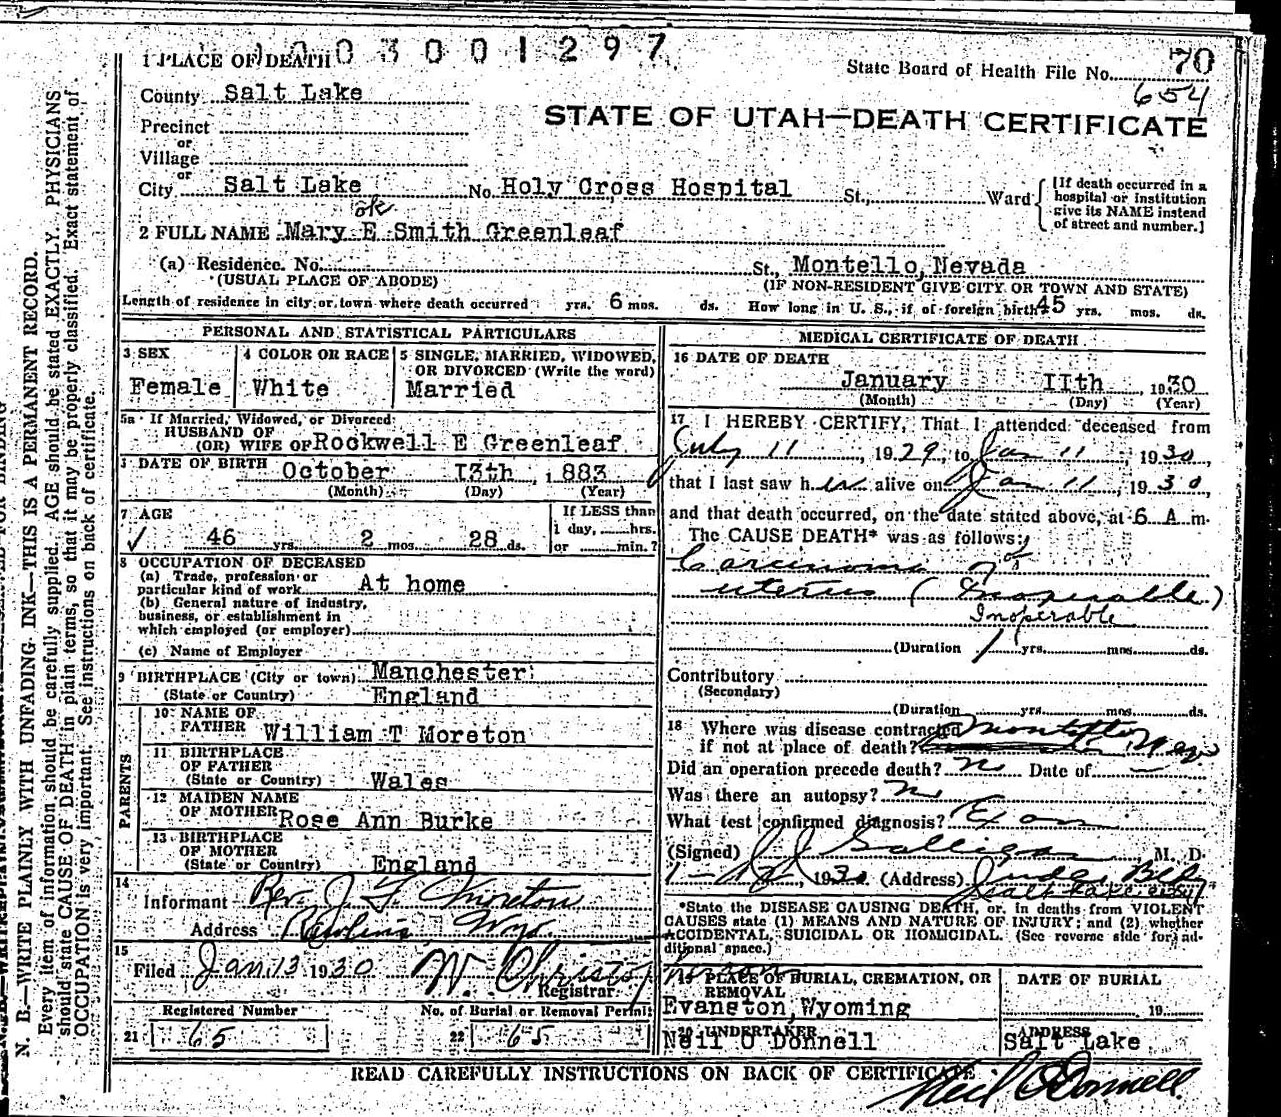 003001297
1 PLACE OF DEATH
State Board of Health File No. 70
654
County Salt Lake
STATE OF UTAH—DEATH CERTIFICATE
Precinct
or
Village
or
City Salt Lake No. Holy Cross Hospital St., Ward
[If death occurred in a
hospital or institution
give its NAME instead
of street and number.]
ok
2 FULL NAME Mary E Smith Greenleaf
(a) Residence. No. St., Montello, Nevada
(USUAL PLACE OF ABODE) (IF NON-RESIDENT GIVE CITY OR TOWN AND STATE)
Length of residence in city or town where death occurred yrs. 6 mos. ds. How long in U. S., if of foreign birth? 45 yrs. mos. ds.
PERSONAL AND STATISTICAL PARTICULARS
3 SEX
Female
4 COLOR OR RACE
White
5 SINGLE, MARRIED, WIDOWED,
OR DIVORCED (Write the word)
Married
5a If Married, Widowed, or Divorced
HUSBAND OF
(OR) WIFE OF Rockwell E Greenleaf
DATE OF BIRTH October I3th, 1883
(Month) (Day) (Year)
7 AGE
46 yrs. 2 mos. 28 ds.
If LESS than
1 day, hrs.
or min.?
8 OCCUPATION OF DECEASED
(a) Trade, profession or
particular kind of work At home
(b) General nature of industry,
business, or establishment in
which employed (or employer)
(c) Name of Employer
9 BIRTHPLACE (City or town) Manchester
(State or Country) England
PARENTS
10 NAME OF
FATHER William T Moreton
11 BIRTHPLACE
OF FATHER
(State or Country) Wales
12 MAIDEN NAME
OF MOTHER Rose Ann Burke
13 BIRTHPLACE
OF MOTHER
(State or Country) England
14
Informant Rev. J. F. Moreton
Address Rawlins, Wyo.
15
Filed Jan. 13 1930 W. Christop
Registrar.
Registered Number No. of Burial or Removal Permit
21 65 22 65
MEDICAL CERTIFICATE OF DEATH
16 DATE OF DEATH
January IIth, 1930
(Month) (Day) (Year)
17 I HEREBY CERTIFY, That I attended deceased from
July 11, 1929, to Jan 11, 1930,
that I last saw her alive on Jan 11, 1930,
and that death occurred, on the date stated above, at 6 A m.
The CAUSE DEATH* was as follows:
Carcinoma of
uterus (Inoperable)
Inoperable
(Duration 1 yrs. mos. ds.
Contributory
(Secondary)
(Duration yrs. mos. ds.
18 Where was disease contracted Montello
if not at place of death? Nev
Did an operation precede death? no Date of —
Was there an autopsy? no
What test confirmed diagnosis? Exam
(Signed) J J Galligan M. D.
1930 (Address) Judge Bldg
Salt Lake City
*State the DISEASE CAUSING DEATH, or, in deaths from VIOLENT
CAUSES state (1) MEANS AND NATURE OF INJURY; and (2) whether
ACCIDENTAL, SUICIDAL OR HOMICIDAL. (See reverse side for ad-
ditional space.)
19 PLACE OF BURIAL, CREMATION, OR
REMOVAL
Evanston, Wyoming
DATE OF BURIAL
19
20 UNDERTAKER
Neil O Donnell
ADDRESS
Salt Lake
READ CAREFULLY INSTRUCTIONS ON BACK OF CERTIFICATE
Neil O'Donnell
N. B.—WRITE PLAINLY WITH UNFADING INK—THIS IS A PERMANENT RECORD.
Every item of information should be carefully supplied. AGE should be stated EXACTLY. PHYSICIANS
should state CAUSE OF DEATH in plain terms, so that it may be properly classified. Exact statement of
OCCUPATION is very important. See instructions on back of certificate.